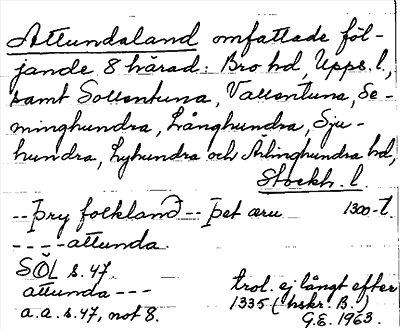 Attundaland omfattade föl-
jande 8 härad: Bro hd, Upps. l.,
samt Sollentuna, Vallentuna, Se-
minghundra, Långhundra, Sju-
hundra, Lyhundra och Ärlinghundra hd,
Stockh. l.
-- þry folkland -- þet æru 1300-t.
---- attunda.
SÖL s. 47.
attunda ---
a.a. s. 47, not 8.
trol. ej långt efter
1335 (hskr. B.)
G.E. 1963.